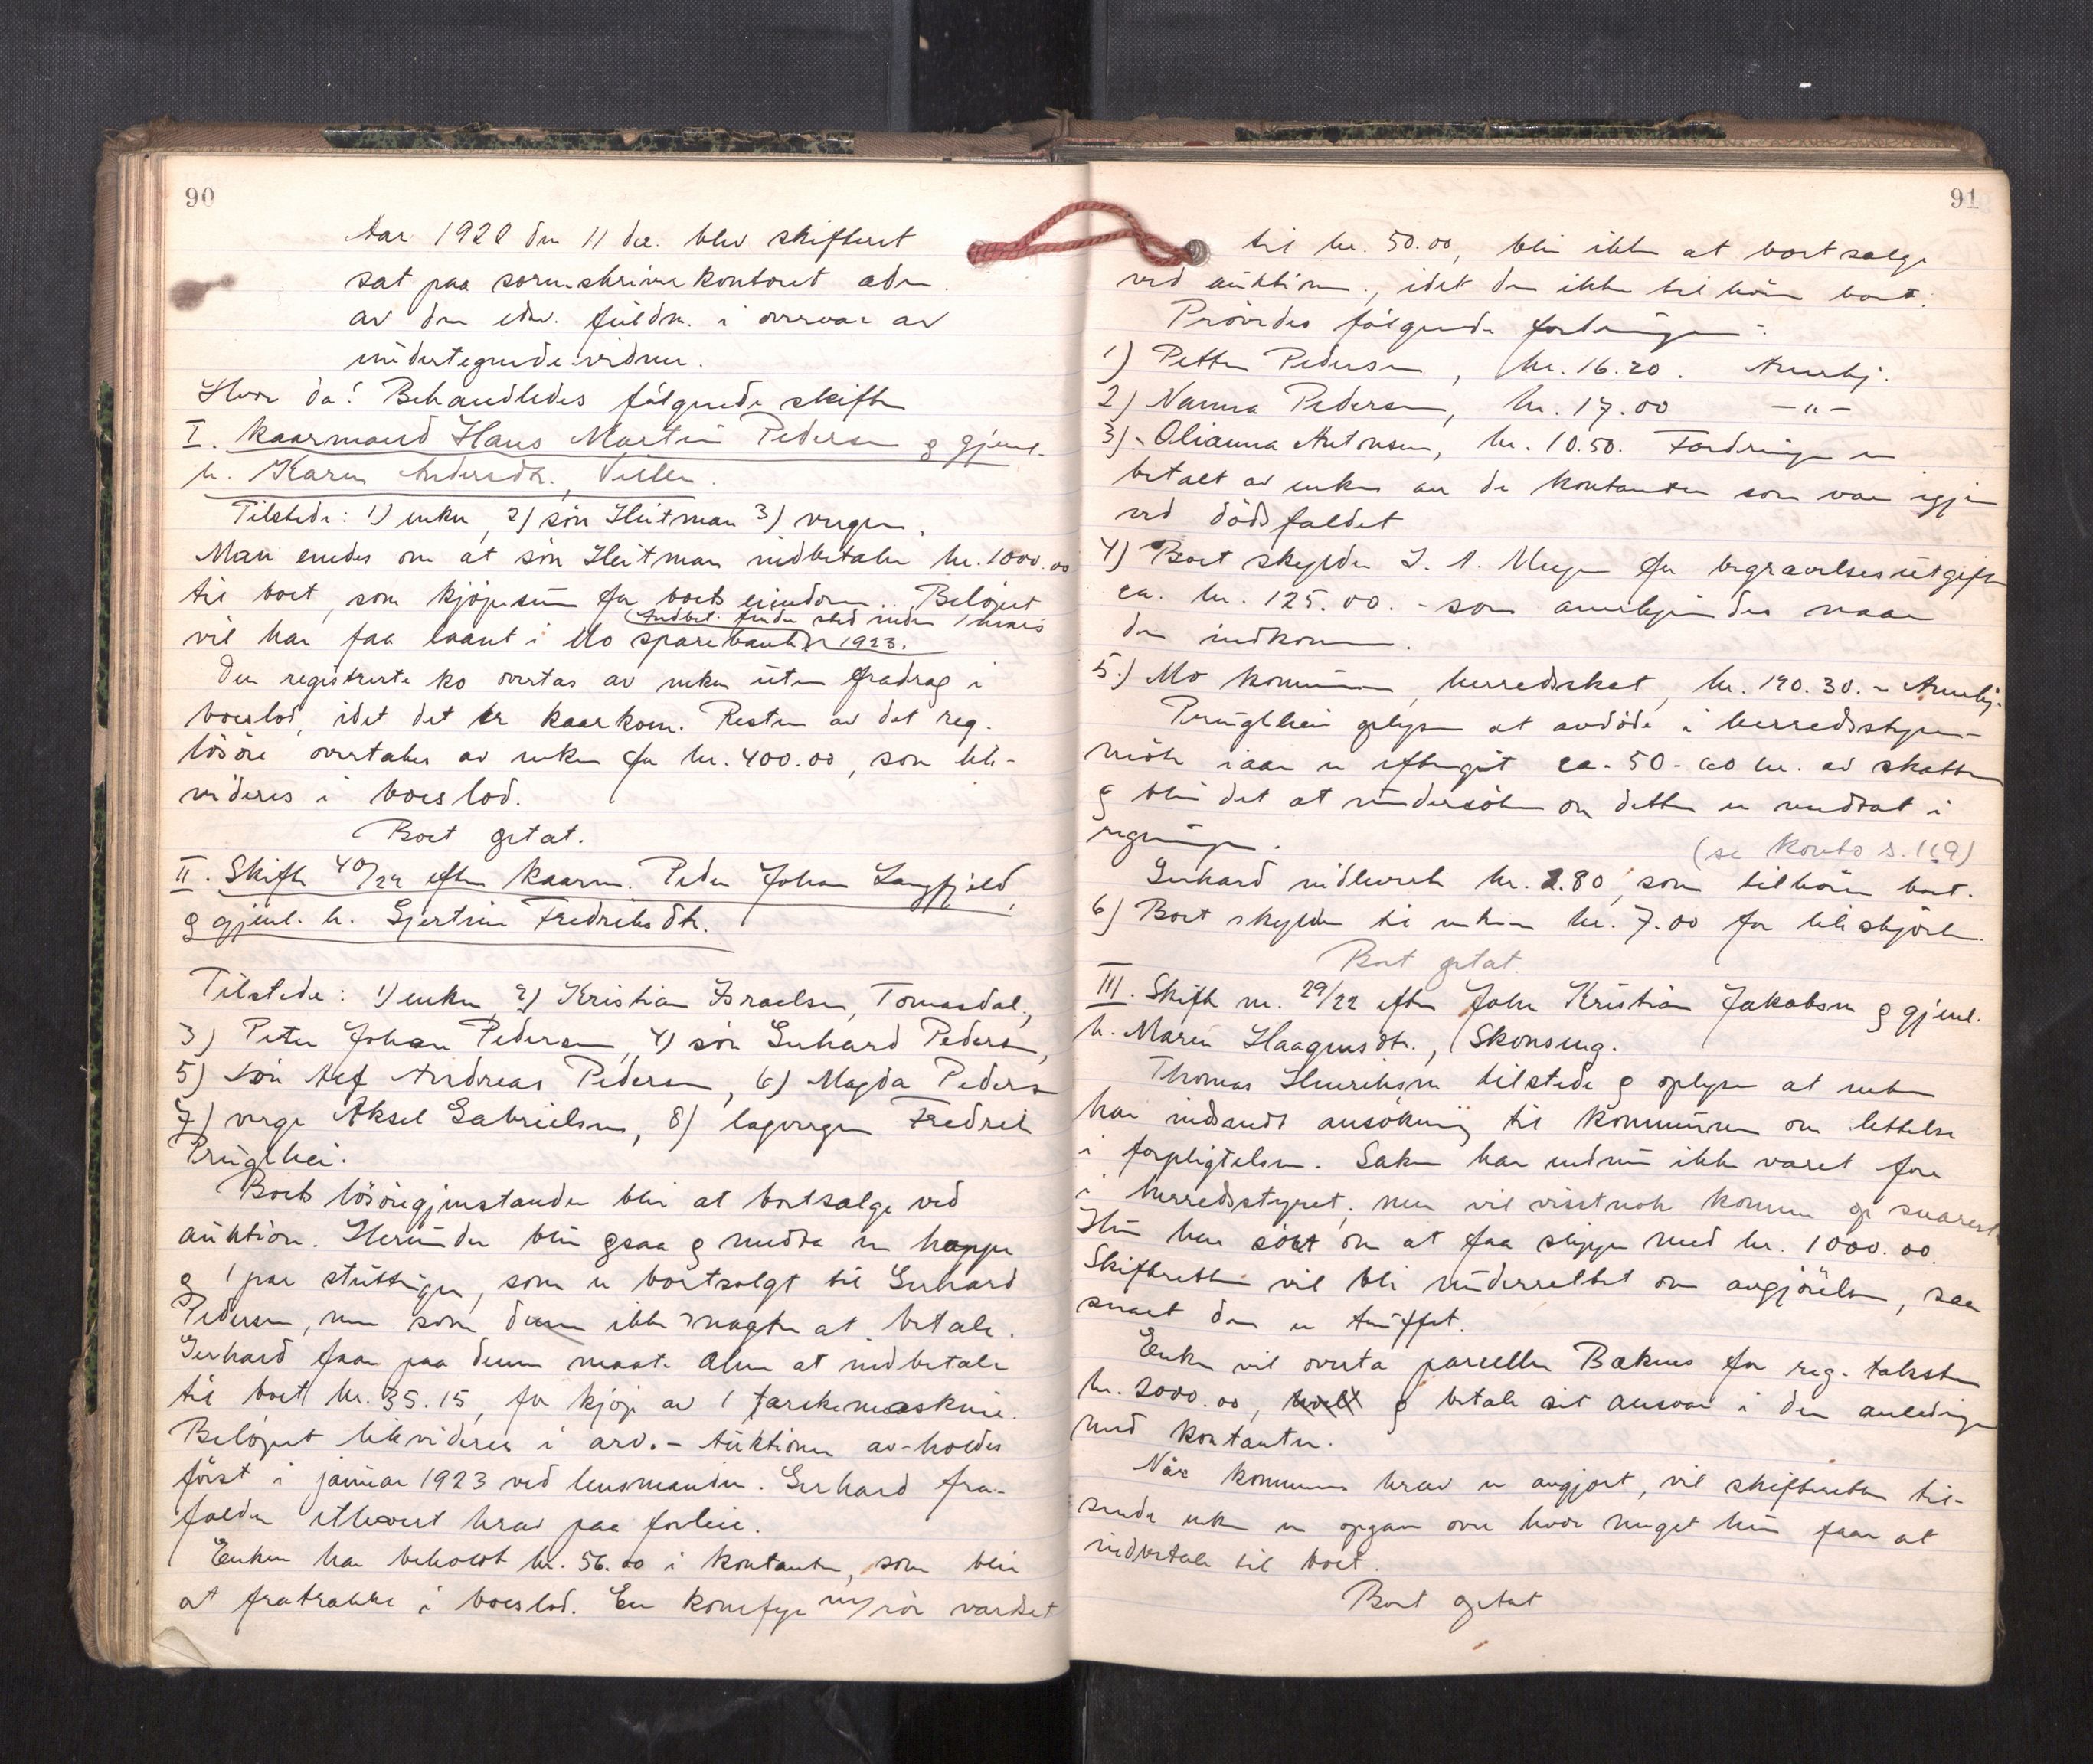 90
Aar 1922 den 11 des. blev skifteret
sat paa sorenskriverkontoret adm.
av den edsv. fuldm. i overvær av
undertegnede vidner.
Hvor da: Behandledes følgende skifter
I. Kaarmand Hans Martin Pedersen og gjenl.
h. Karen Andersdtr.,
Tilstede: 1) enken, 2) søn Heitman 3) vergen.
Man enedes om at søn Heitman indbetaler kr. 1000.00
til boet, som kjøpesum for boets eiendom. Beløpet
Indbet. finder sted inden 1 mars
vil han faa laant i Mo sparebank 1923.
Den registrerte ko overtas av enken uten fradrag i
boeslod, idet det er kaarkom. Resten av det reg.
løsøre overtages av enken for kr. 400.00, som lik-
videres i boeslod.
Boet optat.
II. Skifte 40/22 efter kaarm. Peder Johan Langfjeld,
og gjenl. h. Gjertrine Fredriksdtr.
Tilstede: 1) enken, 2) Kristian Israelsen, Tomasdal,
3) Peter Johan Pedersen, 4) søn Gerhard Pedersen,
5) søn Alf Andreas Pedersen, 6) Magda Pedersen
7) verge Aksel Gabrielsen, 8) lagvergen Fredrik
Prüglhei.
Boets løsøregjenstander blir at bortsælge ved
auktion. Herunder blir ogsaa og medta en hoppe
og 1 par stuttinger, som er bortsolgt til Gerhard
Pedersen, men som denne ikke magter at betale.
Gerhard faar paa denne maate alene at indbetale
til boet kr. 35.15, for kjøp av 1 tærskemaskine.
Beløpet likvideres i arv. - Auktionen av-holdes
først i januar 1923 ved lensmanden. Gerhard fra-
falder ethvert krav paa forleie.
Enken har beholdt kr. 56.00 i kontanter, som blir
at fratrække i boeslod. En komfyr m/rør værdset
91
til kr. 50.00, blir ikke at bortsælge
ved auktionen, idet den ikke tilhører boet.
Prøvedes følgende fordringer:
1) Petter Pedersen, kr. 16.20. Anerkj.
2) Nanna Pedersen, kr. 17.00 -"-
3) Olianna Antonsen, kr. 10.50. Fordringen er
betalt av enken av de kontanter som var igjen
ved dødsfaldet
4) Boet skylder I. A. Meyer for begravelsesutgifter
ca. kr. 125.00. - som anerkjendes naar
den indkommer.
5.) Mo kommune, herredsskat, kr. 190.30. - Anerkj.
Prüglhei oplyser at avdøde i herredsstyre-
møte iaar er eftergit ca. 50-60 kr. av skatten
og blir det at undersøke om dette er medtat i
regningen. (se konto s. 119)
Gerhard indleverte kr. 2.80, som tilhører boet.
6) Boet skylder til enken kr. 7.00 for likskjorte.
Boet optat.
III. Skifte nr. 29/22 efter John Kristian Jakobsen og gjenl.
h. Maren Haagensdtr., Skonseng.
Thomas Henriksen tilstede og oplyser at enken
har indsendt ansøkning til kommunen om lettelse
i forpligtelsen. Saken har endnu ikke været fore
i herredsstyret, men vil visstnok komme op snarest.
Hun har søkt om at faa slippe med kr. 1000.00.
Skifteretten vil bli underrettet om avgjørelsen, saa
snart den er truffet.
Enken vil overta parcellen Bæknes for reg. taksten
kr. 2000.00, og betale sit ansvar i den anledning
med kontanter.
Når kommunens krav er avgjort, vil skifteretten til-
sende enken en opgave over hvor meget hun faar at
indbetale til boet.
Boet optat